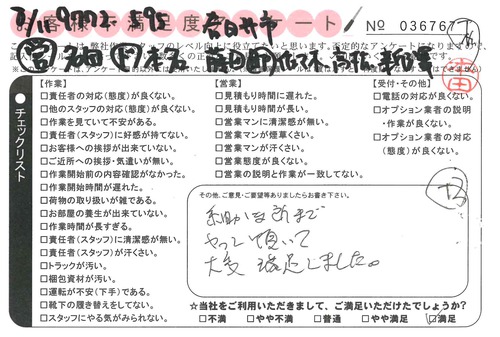 お客様不満足度アンケート
春日井市
No 036767
チェックリスト
【作業】
□責任者の対応(態度)が良くない。
□他のスタッフの対応(態度)が良くない。
□作業を見ていて不安がある。
□責任者(スタッフ)に好感が持てない。
□お客様への挨拶が出来ていない。
□ご近所への挨拶・気遣いが無い。
□作業開始前の内容確認がなかった。
□作業開始時間が遅れた。
□荷物の取り扱いが雑である。
□お部屋の養生が出来ていない。
□作業時間が長すぎる。
□責任者(スタッフ)に清潔感が無い。
□責任者(スタッフ)が汗くさい。
□トラックが汚い。
□梱包資材が汚い。
□運転が不安(下手)である。
□靴下の履き替えをしてない。
□スタッフにやる気がみられない。
【営業】
□見積もり時間に遅れた。
□見積もり時間が長い。
□営業マンに清潔感が無い。
□営業マンが煙草くさい。
□営業マンが汗くさい。
□営業態度が良くない。
□営業の説明と作業が一致してない。
【受付・その他】
□電話の対応が良くない。
□オプション業者の説明・作業が良くない。
□オプション業者の対応(態度)が良くない。
その他、ご意見・ご要望等ありましたらお書き下さい。
細かな所まで
やって頂いて
大変満足しました。
☆当社をご利用いただきまして、ご満足いただけたでしょうか?
□不満 □やや不満 □普通 □やや満足 ☑満足